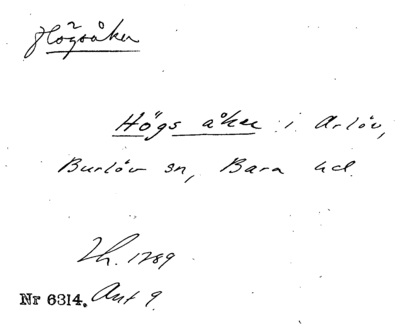 Högsåker
Högs åker i Arlöv,
Burlöv sn, Bara hd
Lh. 1789
Nr 6314. Ant 9